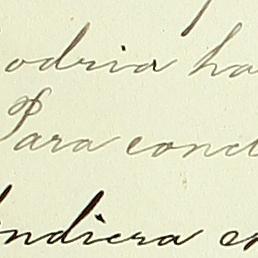 odria ha
Para conc
indiera en